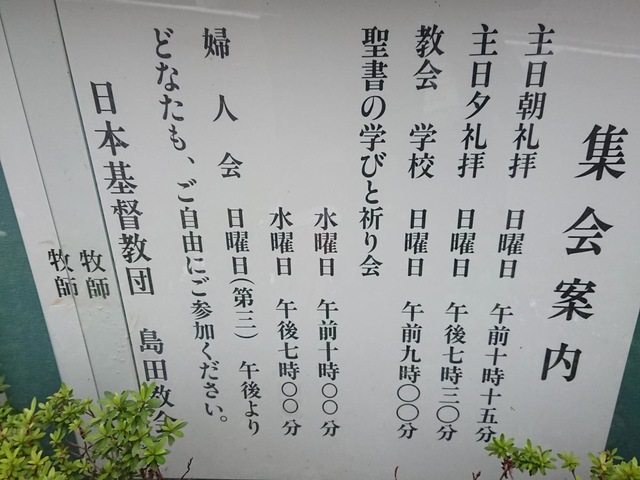 集会案内
主日朝礼拝 日曜日 午前十時十五分
主日夕礼拝 日曜日 午後七時三〇分
教会 学校 日曜日 午前九時〇〇分
聖書の学びと祈り会
水曜日 午前十時〇〇分
水曜日 午後七時〇〇分
婦人会 日曜日(第三) 午後より
どなたも、ご自由にご参加ください。
日本基督教団 島田教会
牧師
牧師